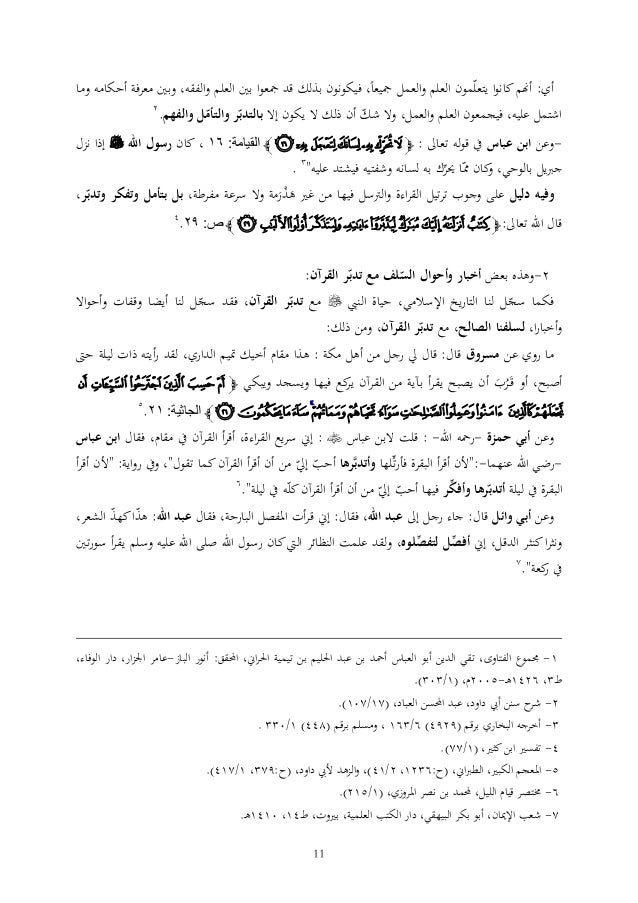 أي: أنهم كانوا يتعلّمون العلم والعمل جميعاً، فيكونون بذلك قد جمعوا بين العلم والفقه، وبين معرفة أحكامه وما
اشتمل عليه، فيجمعون العلم والعمل، ولا شكّ أن ذلك لا يكون إلا بالتدبّر والتأمّل والفهم.٢
-وعن ابن عباس في قوله تعالى : ﴿ لَا تُحَرِّكْ بِهِ لِسَانَكَ لِتَعْجَلَ بِهِ ﴾ القيامة: ١٦ ، كان رسول الله ﷺ إذا نزل
جبريل بالوحي، وكان ممّا يحرّك به لسانه وشفتيه فيشتد عليه"٣.
وفيه دليل على وجوب ترتيل القراءة والترسل فيها من غير هذْرَمة ولا سرعة مفرطة، بل بتأمل وتفكر وتدبّر،
قال الله تعالى:﴿ كِتَابٌ أَنزَلْنَاهُ إِلَيْكَ مُبَارَكٌ لِّيَدَّبَّرُوا آيَاتِهِ وَلِيَتَذَكَّرَ أُولُو الْأَلْبَابِ ﴾ص: ٢٩.٤
٢-وهذه بعض أخبار وأحوال السّلف مع تدبّر القرآن:
فكما سجّل لنا التاريخ الإسلامي، حياة النبي ﷺ مع تدبّر القرآن، فقد سجّل لنا أيضا وقفات وأحوالا
وأخبارا، لسلفنا الصالح، مع تدبّر القرآن، ومن ذلك:
ما روي عن مسروق قال: قال لي رجل من أهل مكة : هذا مقام أخيك تميم الداري، لقد رأيته ذات ليلة حتى
أصبح، أو قَرُبَ أن يصبح يقرأ بآية من القرآن يركع فيها ويسجد ويبكي ﴿ أَمْ حَسِبَ الَّذِينَ اجْتَرَحُوا السَّيِّئَاتِ أَن
نَّجْعَلَهُمْ كَالَّذِينَ آمَنُوا وَعَمِلُوا الصَّالِحَاتِ سَوَاءً مَّحْيَاهُمْ وَمَمَاتُهُمْ سَاءَ مَا يَحْكُمُونَ ﴾ الجاثية: ٢١.٥
وعن أبي حمزة -رحمه الله- : قلت لابن عباس ﷺ : إني سريع القراءة، أقرأ القرآن في مقام، فقال ابن عباس
-رضي الله عنهما-:"لأن أقرأ البقرة فأرتّلها وأتدبّرها أحبّ إليّ من أن أقرأ القرآن كما تقول"، وفي رواية: "لأن أقرأ
البقرة في ليلة أتدبّرها وأفكّر فيها أحبّ إليّ من أن أقرأ القرآن كلّه في ليلة".٦
وعن أبي وائل قال: جاء رجل إلى عبد الله، فقال: إني قرأت المفصل البارحة، فقال عبد الله: هذّا كهذّ الشعر،
ونثرا كنثر الدقل، إني أفصّل لتفصّلوه، ولقد علمت النظائر التي كان رسول الله صلى الله عليه وسلم يقرأ سورتين
في ركعة".٧
١- مجموع الفتاوى، تقي الدين أبو العباس أحمد بن عبد الحليم بن تيمية الحراني، المحقق: أنور الباز-عامر الجزار، دار الوفاء،
ط٣، ١٤٢٦هـ-٢٠٠٥م، (٣٠٣/١).
٢- شرح سنن أبي داود، عبد المحسن العباد، (١٠٧/١٧).
٣- أخرجه البخاري برقم (٤٩٢٩) ١٦٣/٦ ، ومسلم برقم (٤٤٨) ٣٣٠/١ .
٤- تفسير ابن كثير، (٧٧/١).
٥- المعجم الكبير، الطبراني، (ح:١٢٣٦، ٤١/٢)، والزهد لأبي داود، (ح:٣٧٩، ٤١٧/١).
٦- مختصر قيام الليل، لمحمد بن نصر المروزي، (٢١٥/١).
٧- شعب الإيمان، أبو بكر البيهقي، دار الكتب العلمية، بيروت، ط١٤، ١٤١٠هـ.
11